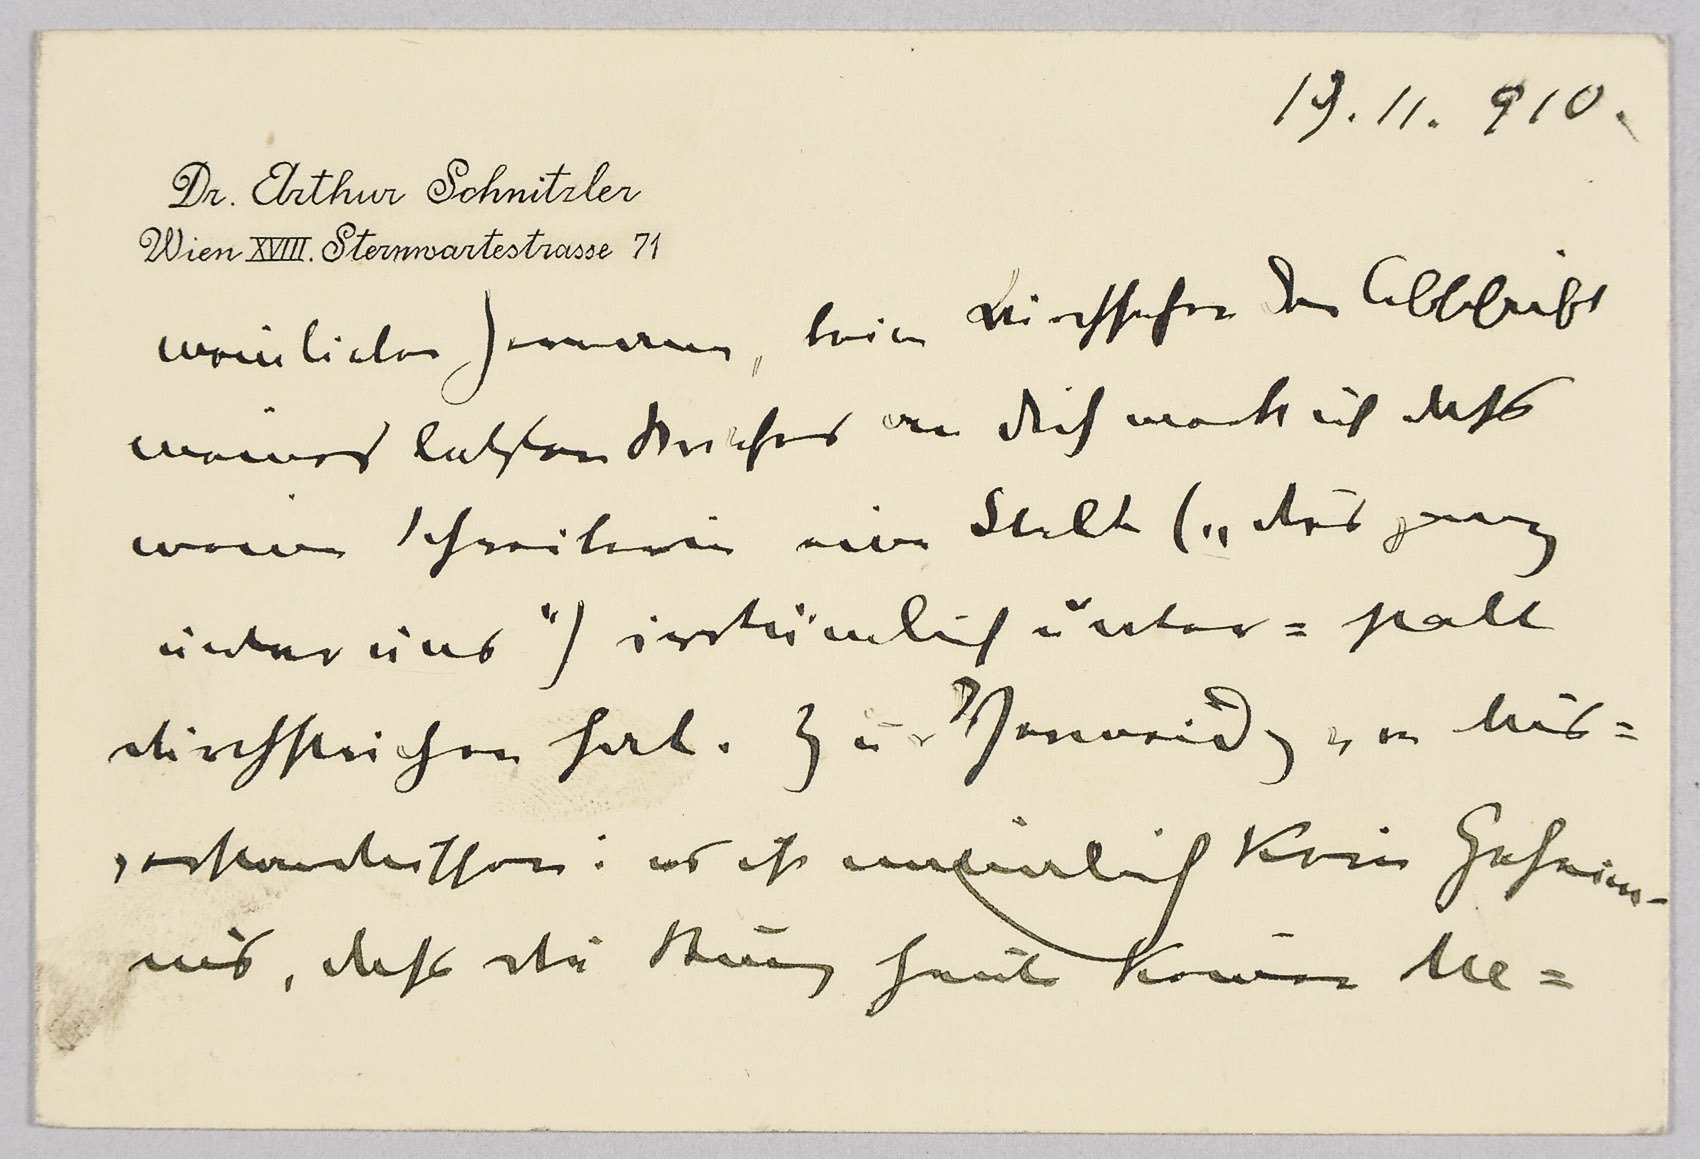 19. 11. 910.
Dr. Arthur Schnitzler
Wien XVIII. Sternwartestrasse 71
mein lieber Hermann, beim Durchsehen der Abschrift
meines letzten Briefes an dich merk ich daß
meine Schreiberin eine Stelle („das ganz
unter uns“) irrtümlich unter=
durchstrichen hat. Zur Vermeidung von Mis=
verständnissen: es ist natürlich kein Geheim-
nis, daß die Burg heute keinen